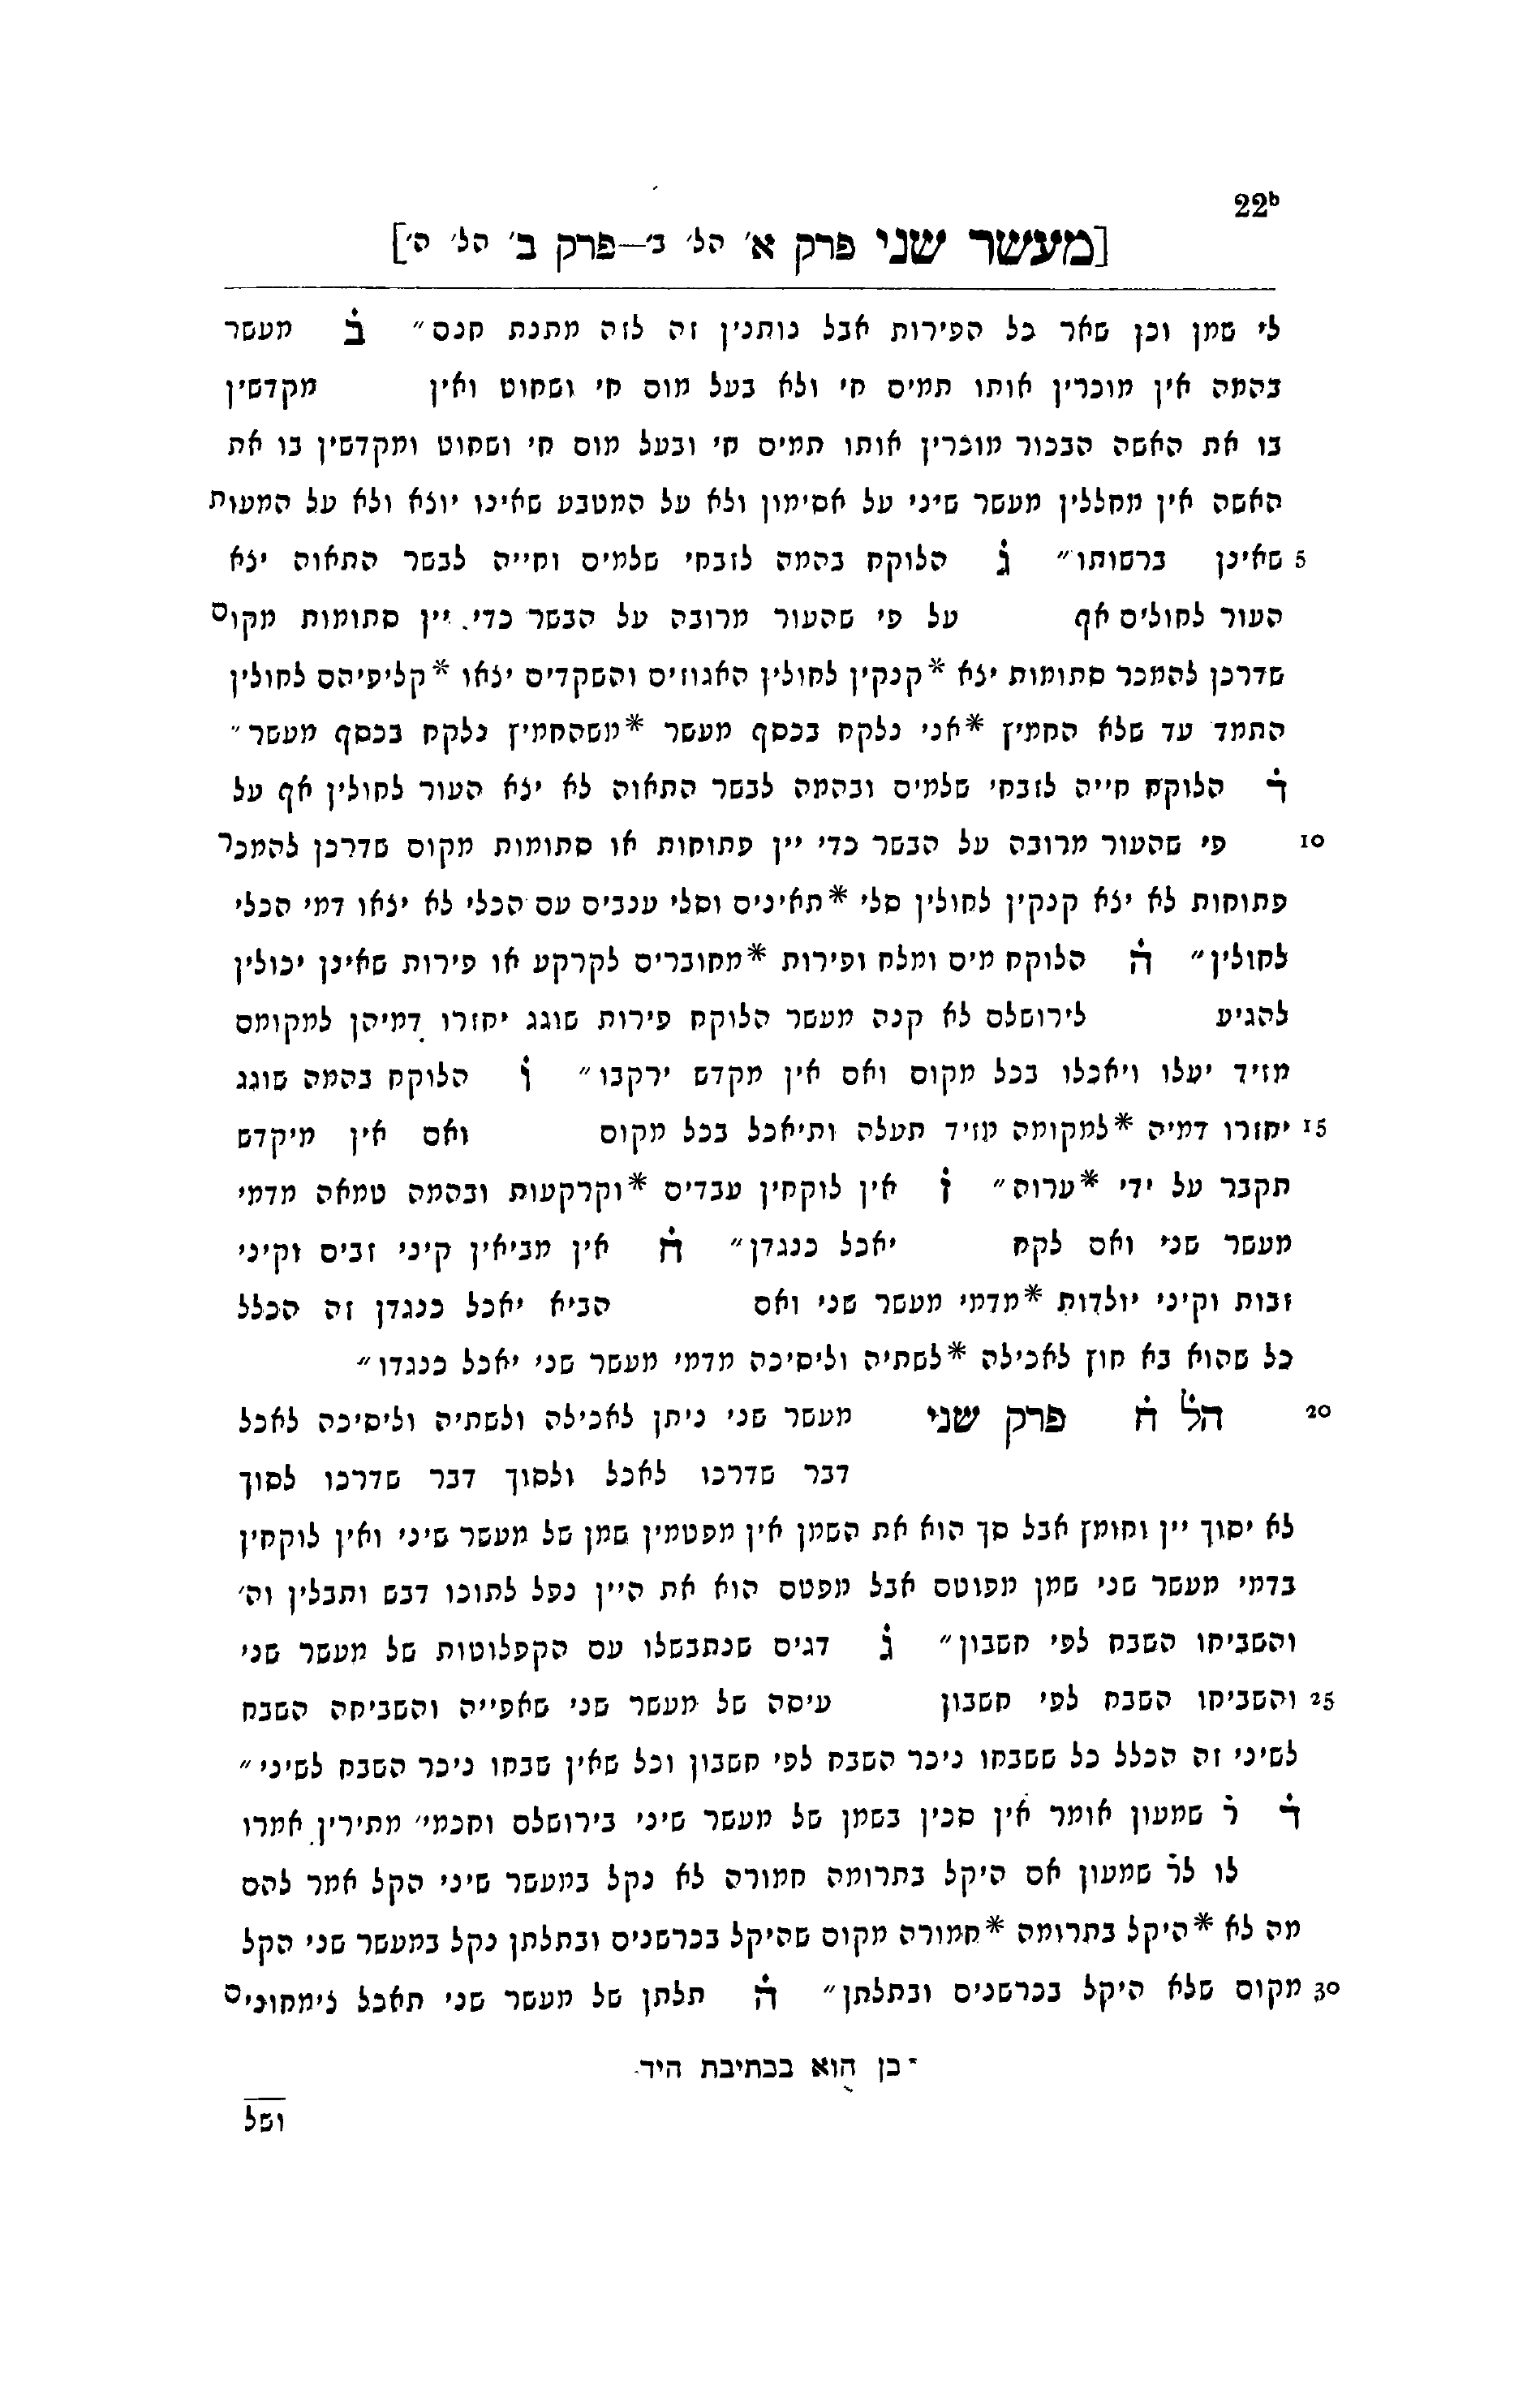 22b
[מעשר שני פרק א' הל' ב'—פרק ב' הל' ה']
לי שמן וכן שאר כל הפירות אבל נותנין זה לזה מתנת חנם״ ב מעשר
בהמה אין מוכרין אותו תמים חי ולא בעל מום חי ושחוט ואין מקדשין
בו את האשה הבכור מוכרין אותו תמים חי ובעל מום חי ושחוט ומקדשין בו את
האשה אין מחללין מעשר שיני על אסימון ולא על המטבע שאינו יוצא ולא על המעות
5 שאינן ברשותו״ ג הלוקח בהמה לזבחי שלמים וחייה לבשר התאוה יצא
העור לחולים אף על פי שהעור מרובה על הבשר כדי יין סתומות מקום
שדרכן להמכר סתומות יצא *קנקין לחולין האגוזים והשקדים יצאו *קליפיהם לחולין
התמד עד שלא החמיץ *אני נלקח בכסף מעשר *משהחמיץ נלקח בכסף מעשר״
ד הלוקח חייה לזבחי שלמים ובהמה לבשר התאוה לא יצא העור לחולין אף על
10 פי שהעור מרובה על הבשר כדי יין פתוחות או סתומות מקום שדרכן להמכר
פתוחות לא יצא קנקין לחולין סלי *תאינים וסלי ענבים עם הכלי לא יצאו דמי הכלי
לחולין״ ה הלוקח מים ומלח ופירות *מחוברים לקרקע או פירות שאינן יכולין
להגיע לירושלם לא קנה מעשר הלוקח פירות שוגג יחזרו דמיהן למקומם
מזיד יעלו ויאכלו בכל מקום ואם אין מקדש ירקבו״ ו הלוקח בהמה שוגג
15 יחזרו דמיה *למקומה מזיד תעלה ותיאכל בכל מקום ואם אין מיקדש
תקבר על ידי *ערוה״ ז אין לוקחין עבדים *וקרקעות ובהמה טמאה מדמי
מעשר שני ואם לקח יאכל כנגדן״ ח אין מביאין קיני זבים וקיני
זבות וקיני יולדות *מדמי מעשר שני ואם הביא יאכל כנגדן זה הכלל
כל שהוא בא חוץ לאכילה *לשתיה וליסיכה מדמי מעשר שני יאכל כנגדו״
20 הל ח פרק שני מעשר שני ניתן לאכילה ולשתיה וליסיכה לאכל
דבר שדרכו לאכל ולסוך דבר שדרכו לסוך
לא יסוך יין וחומץ אבל סך הוא את השמן אין מפטמין שמן של מעשר שיני ואין לוקחין
בדמי מעשר שני שמן מפוטם אבל מפטם הוא את היין נפל לתוכו דבש ותבלין וה'
והשביחו השבח לפי חשבון״ ג דגים שנתבשלו עם הקפלוטות של מעשר שני
25 והשביחו השבח לפי חשבון עיסה של מעשר שני שאפייה והשביחה השבח
לשיני זה הכלל כל ששבחו ניכר השבח לפי חשבון וכל שאין שבחו ניכר השבח לשיני״
ד ר שמעון אומר אין סכין בשמן של מעשר שיני בירושלם וחכמי' מתירין אמרו
לו לר שמעון אם היקל בתרומה חמורה לא נקל במעשר שיני הקל אמר להם
מה לא *היקל בתרומה *חמורה מקום שהיקל בכרשנים ובתלתן נקל במעשר שני הקל
30 מקום שלא היקל בכרשנים ובתלתן״ ה תלתן של מעשר שני תאכל צימחונים
*כן הוא בכתיבת היד
ושל